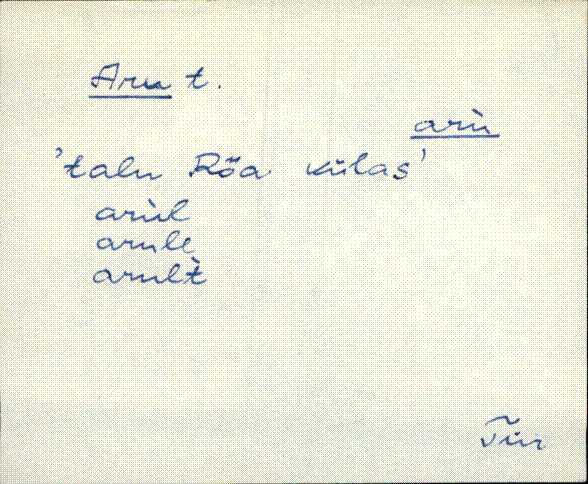 Aru t.
arù
'talu Rõa külas'
arùl
arule
arult̀
Tür